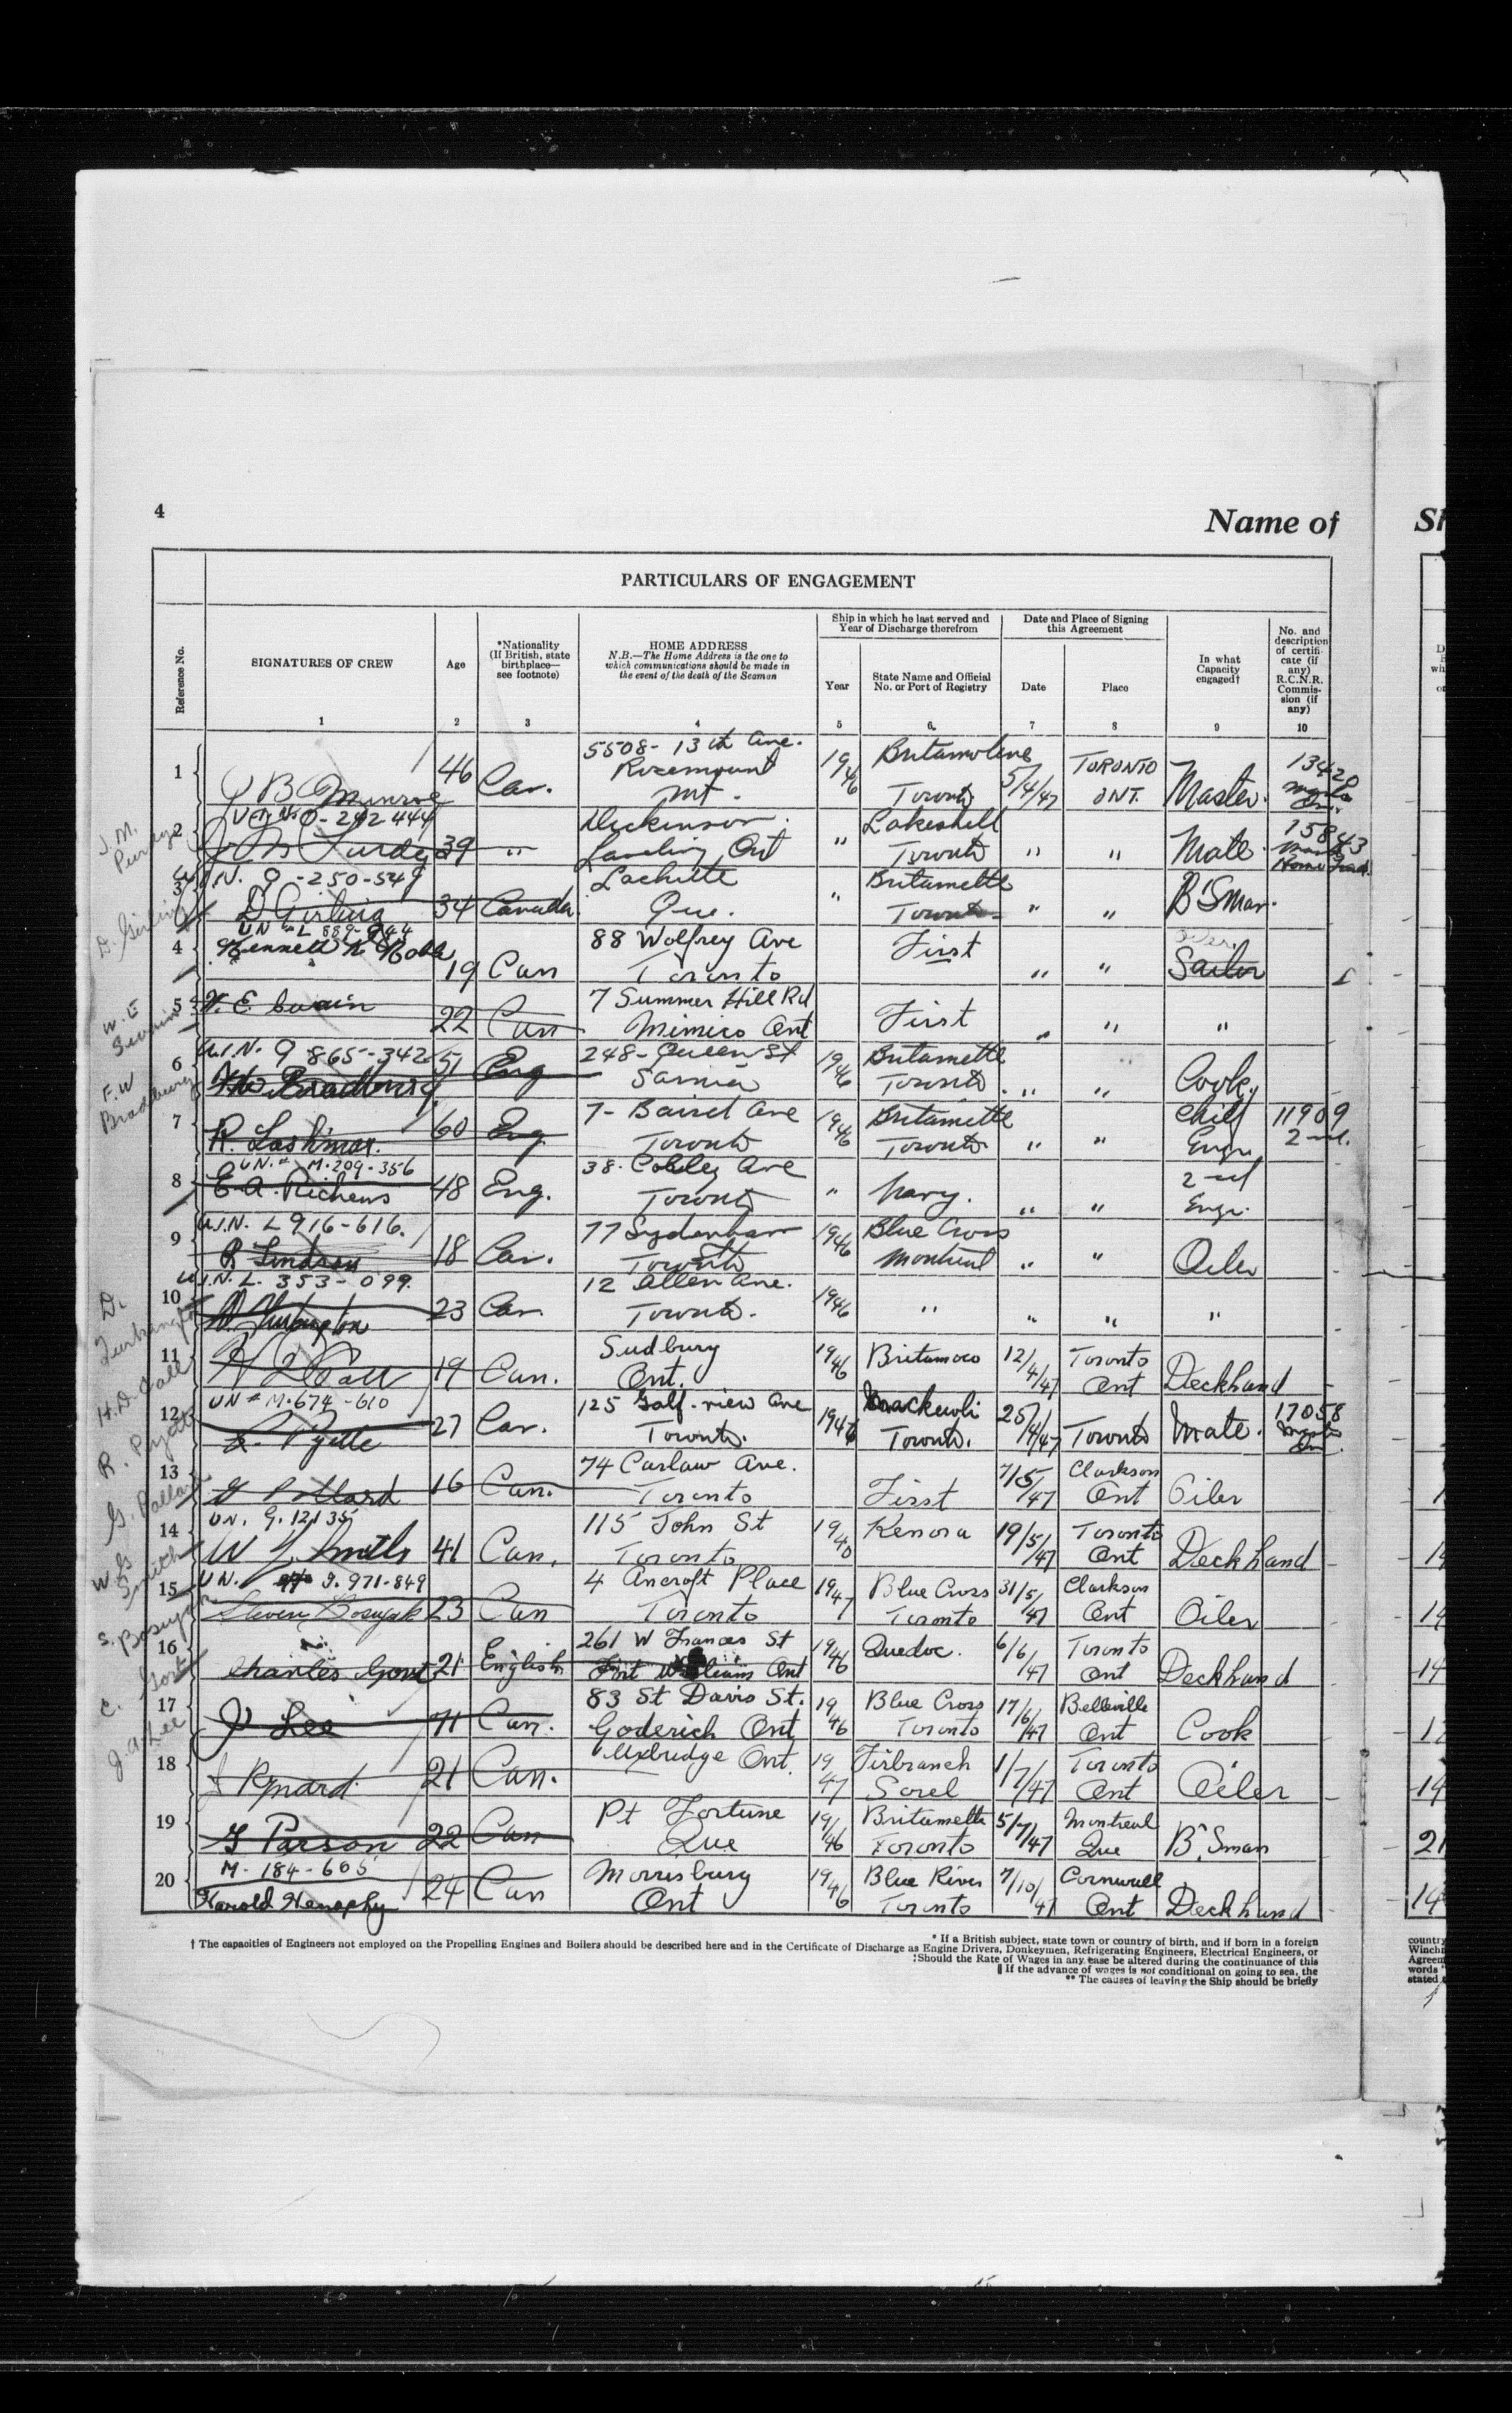 4
Name of
PARTICULARS OF ENGAGEMENT
Reference No.
SIGNATURES OF CREW
Age
*Nationality
(If British, state
birthplace—
see footnote)
HOME ADDRESS
N.B.—The Home Address is the one to
which communications should be made in
the event of the death of the Seaman
Ship in which he last served and
Year of Discharge therefrom
Year
State Name and Official
No. or Port of Registry
Date and Place of Signing
this Agreement
Date
Place
In what
Capacity
engaged†
No. and
description
of certifi-
cate (if
any)
R.C.N.R.
Commis-
sion (if
any)
1 2 3 4 5 6 7 8 9 10
1 J B Munroe 46 Can. 5508 - 13th Ave. Rosemount Mt. 1946 Britamolene Toronto 5/4/47 TORONTO ONT. Master. 13420
2 0-242444 39 " Dickinson Landing Ont " Lakeshell Toronto " " Mate 15843 Home Trad.
3 U.I.N. 9-250-549 D Girling 34 Canada. Lachute Que. " Britamette Toronto " " B'Sman.
4 UN # L 889-944 Kenneth Noble 19 Can 88 Wolfrey Ave Toronto First " " Sailor
5 W. E. Swain 22 Can 7 Summer Hill Rd Mimico Ont First " " "
6 U.I.N. 9-865-342 F W Bradbury 51 Eng 248 - Queen St Sarnia 1946 Britamette Toronto " " Cook.
7 R. Lashmar. 60 Eng 7 - Baird Ave Toronto 1946 Britamette Toronto " " Chief Engr. 11909 2nd.
8 UN. # M. 209-356 E. A. Richens 48 Eng. 38. Ave Toronto " Navy. " " 2nd Engr.
9 U.I.N. L 916-616. R Lindsay 18 Can. 77 Sydenham Toronto 1946 Blue Cross Montreal " " Oiler
10 U.I.N. L. 353-099. D. 23 Can. 12 Allen Ave. Toronto. 1946 " " " "
11 H D 19 Can. Sudbury Ont. 1946 Britamoco 12/4/47 Toronto Ont Deckhand
12 UN # M. 674-610 R. Pyette 27 Can. 125 Golf-view Ave Toronto. 1947 Toronto. 25/4/47 Toronto Mate. 17058
13 G Pollard 16 Can. 74 Carlaw Ave. Toronto First 7/5/47 Clarkson Ont Oiler
14 UN. 9. 12135 W G Smith 41 Can. 115 John St Toronto 1940 Kenora 19/5/47 Toronto Ont Deckhand
15 UN. 971-849 Steven Bosuyak 23 Can 4 Ancroft Place Toronto 1947 Blue Cross Toronto 31/5/47 Clarkson Ont Oiler
16 Charles Gort 21 English 261 W Frances St Fort William Ont 1946 Quedoc. 6/6/47 Toronto Ont Deckhand
17 J Lee 71 Can. 83 St Davis St. Goderich Ont 1946 Blue Cross Toronto 17/6/47 Belleville Ont Cook
18 J 21 Can. Uxbridge Ont. 1947 Firbranch Sorel 1/7/47 Toronto Ont Oiler
19 G Parson 22 Can Pt Fortune Que 1946 Britamette Toronto 5/7/47 Montreal Que B'Sman
20 M-184-605 Harold 24 Can Morrisburg Ont 1946 Blue River Toronto 7/10/47 Cornwall Ont Deckhand
D. Girling
W. E Swain
F. W Bradbury
R. Pyette
G. Pollard
W G Smith
S. Bosuyak
C. Gort
J. A. Lee
* If a British subject, state town or country of birth, and if born in a foreign
† The capacities of Engineers not employed on the Propelling Engines and Boilers should be described here and in the Certificate of Discharge as Engine Drivers, Donkeymen, Refrigerating Engineers, Electrical Engineers, or
‡Should the Rate of Wages in any case be altered during the continuance of this
‖ If the advance of wages is not conditional on going to sea, the
** The causes of leaving the Ship should be briefly
country
Agreem
words
stated